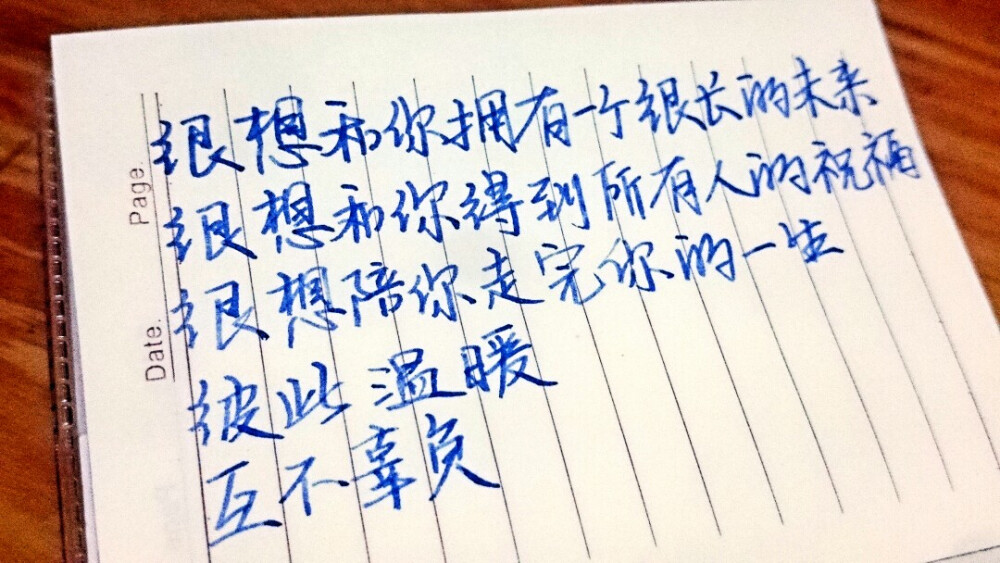 很想和你拥有一个很长的未来
很想和你得到所有人的祝福
很想陪你走完你的一生
彼此温暖
互不辜负
Page.
Date.